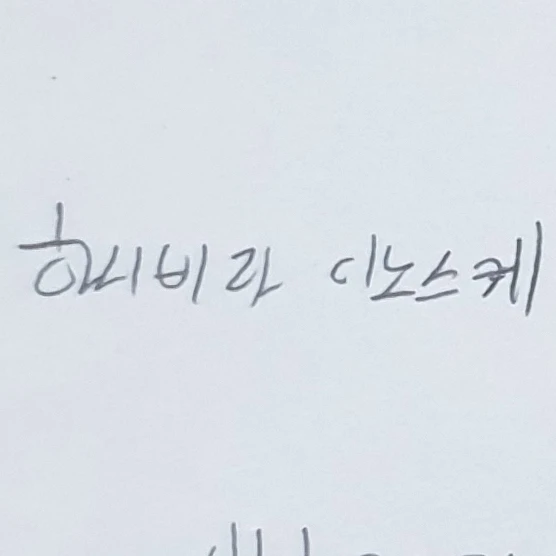 하시비라 이노스케